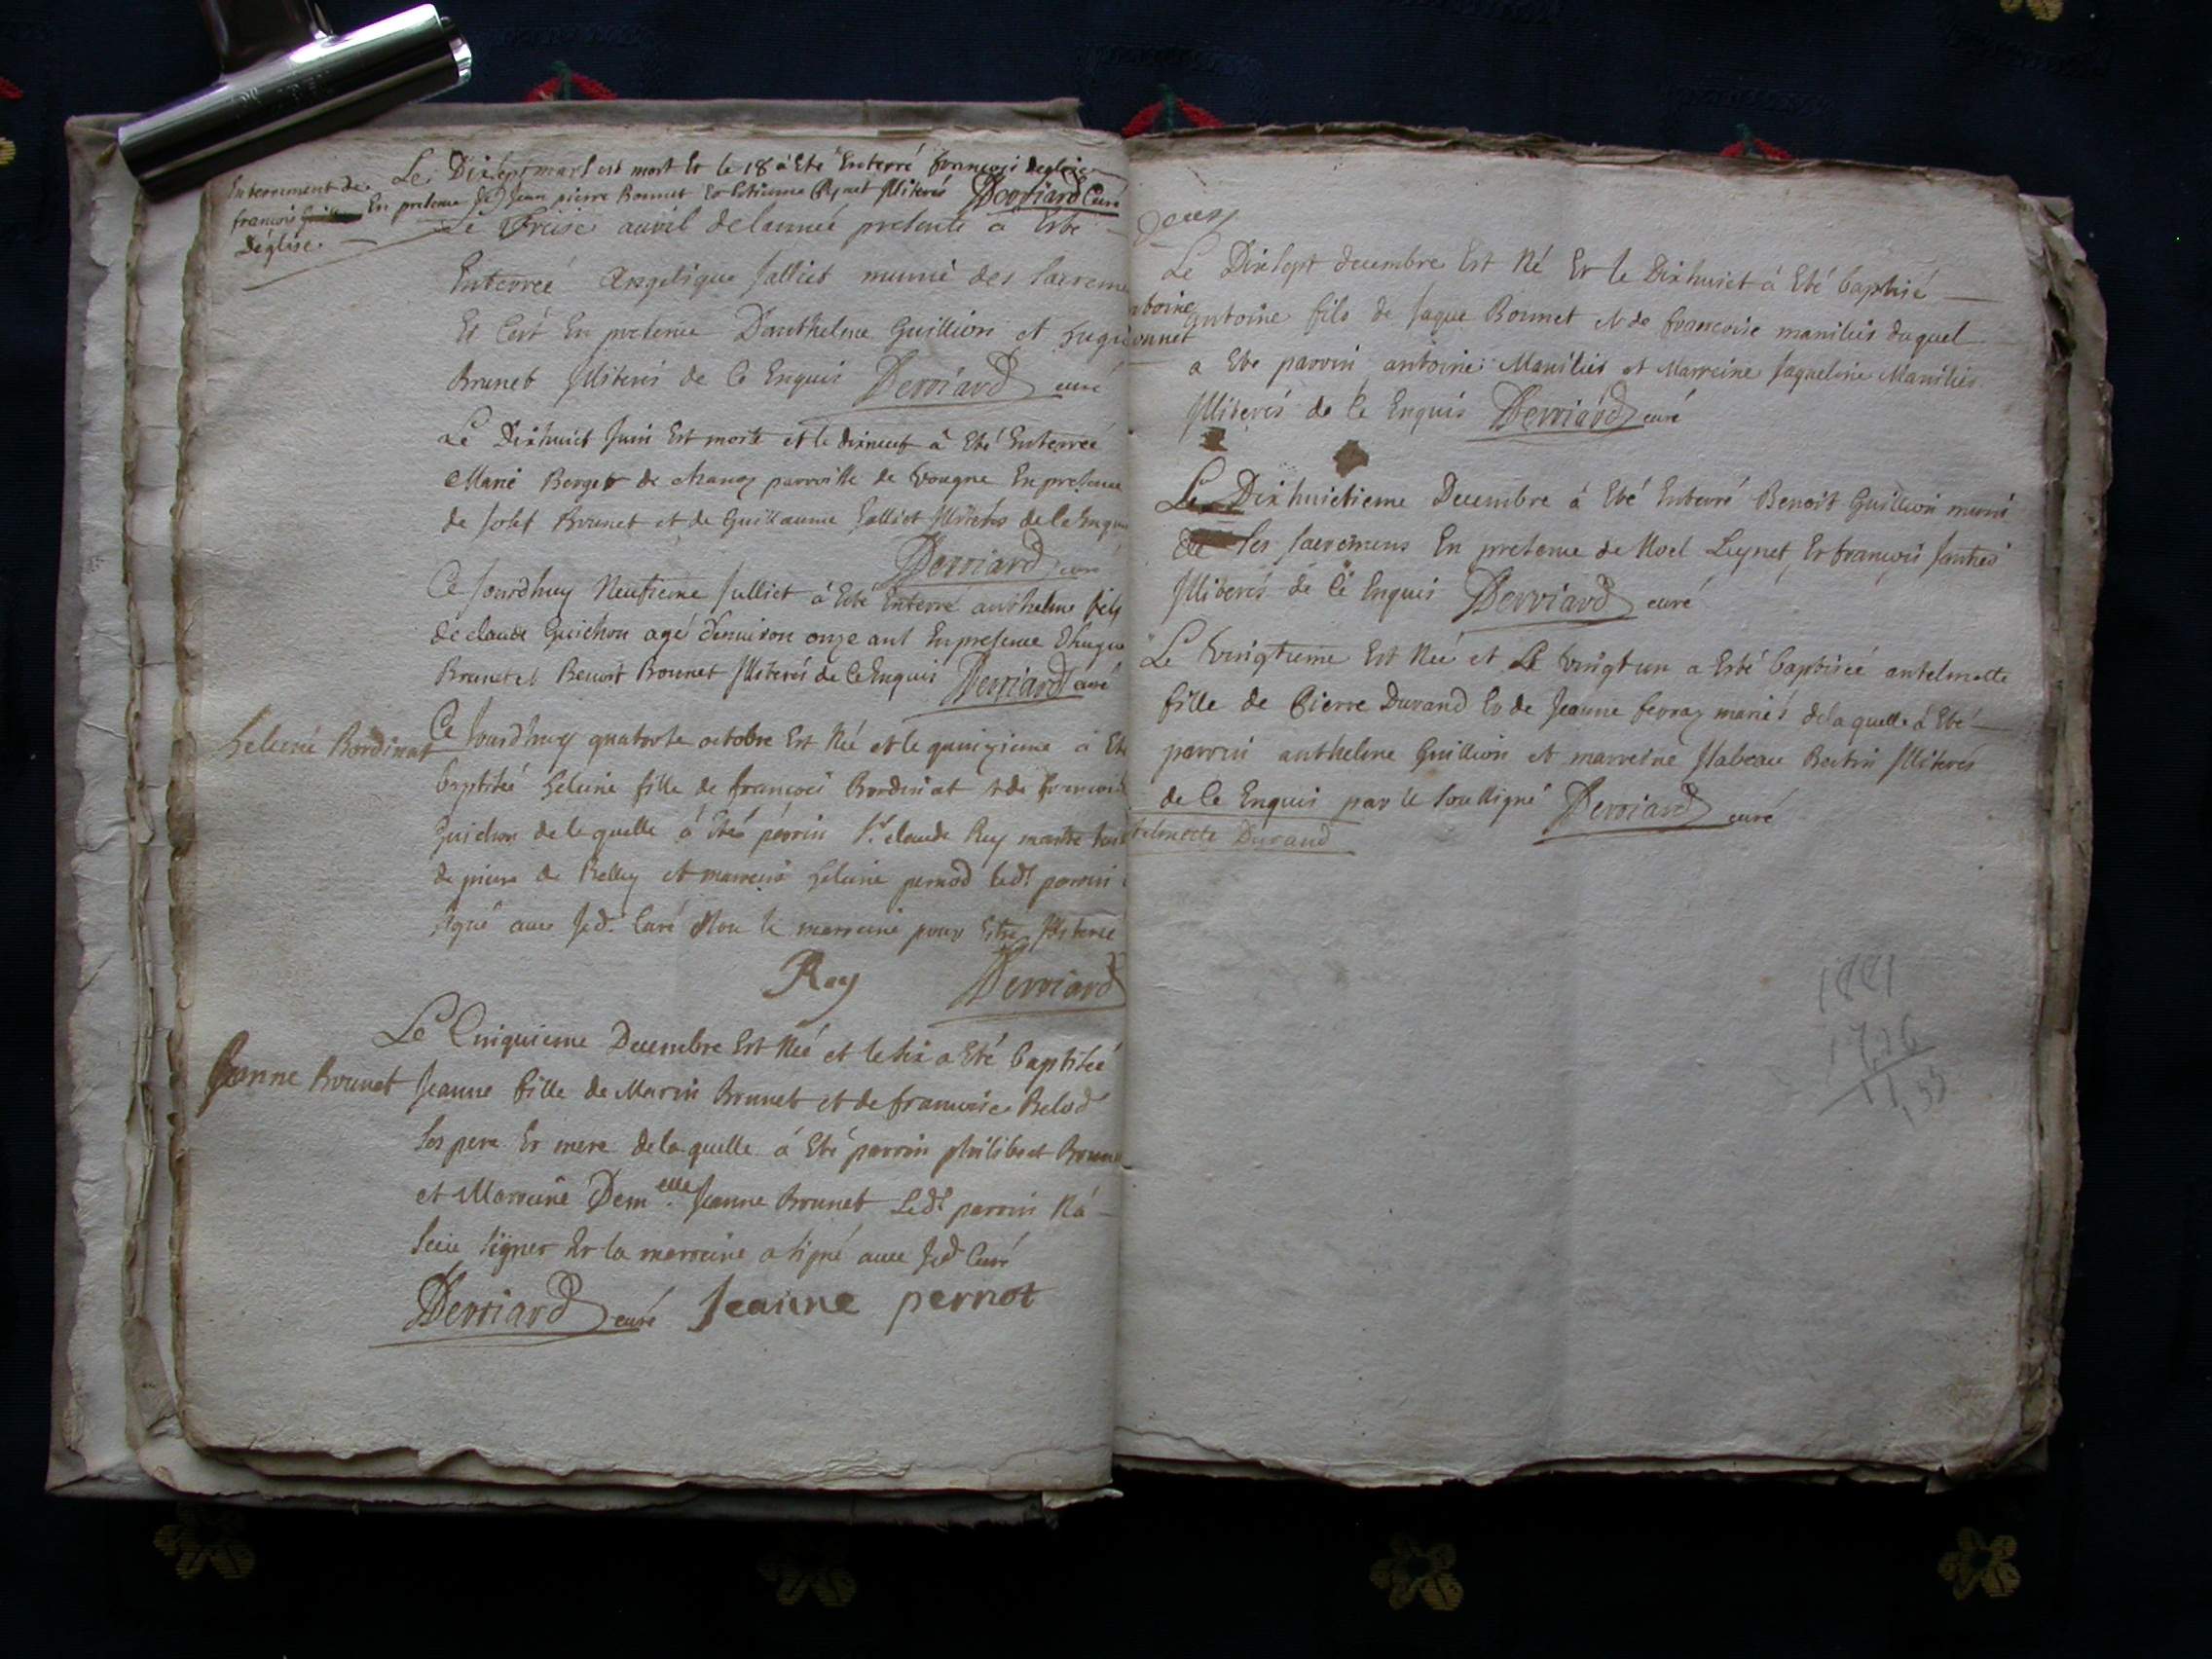 Enterrement de
françois
Déglise.
Le Dixsept mars est mort Et le 18 à Eté Enterré françois Deglise
En presence Jean pierre Bonnet Et Estienne Illiterés Derriard Curé
Le Treise auril delanneé presente à Esté
Enterreé Angelique Jalliet munié des Sacreme
Et C'est En presence D'anthelme Guillion et hugu
Brunet Illiterés de Ce Enquis Derriard curé
Le Dixhuict Juin Est morte et le dixneuf à Eté Enterreé
Marie Berger de chanaz parroisse de vongne En presence
de Josef Brunet et de Guillaume Jalliet Illiterés de Ce Enqui
Derriard curé
Ce Jourdhuy Neufieme Julliet à Esté Enterré anthelme fils
de claude Guichon agé denuiron onze ans En presence Dhugue
Brunet et Benoit Bonnet Illiterés de Ce Enquis Derriard curé
heleine Bordinat
Ce Jourd'huy quatorse octobre Est Neé et le quinzieme à Eté
baptiseé heleine fille de françois Bordinat et de francoise
Guichon de le quelle à Eté parrin Sr. claude Rey maitre
de Belley et marreine heleine pernod Led.t parrin
signé auec Jed. Curé Non le marreine pour Estre Illiteré
Rey Derriard
Jeanne Brunet
Le Cinquieme Decembre Est Neé et le six a Eté baptiseé
Jeanne fille de Marin Brunet et de francoise Belod
Ses pere Et mere delaquelle à Eté parrin philibert Brune
et Marreine Dem.elle Jeanne Brunet Led.t parrin Ná
Sceu Signer Et la marreine a signé auec Jed. Curé
Derriard curé Jeanne pernot
Le Dixsept decembre Est Né Et le Dixhuict à Eté baptisé
ntoine
onnet
antoine fils de Jaque Bonnet et de francoise maniliés duquel
a Eté parrin antoine Maniliés et Marreine Jaqueline Maniliés
Illiterés de Ce Enquis Derriard curé
Le Dixhuictieme Decembre à Eté Enterré Benoit Guillion muni
de Ses Sacremens En presence de Noel Luynet, Et françois
Illiterés de Ce Enquis Derriard curé
Le vingtieme Est Neé et Le vingtun a Esté baptiseé antelmette
fille de Pierre Durand Et de Jeanne ferraz mariés delaquelle à Eté
parrin anthelme Guillion et marreine Isabeau Bertin Illiterés
de Ce Enquis par le Soussigné Derriard curé
telmette Durand